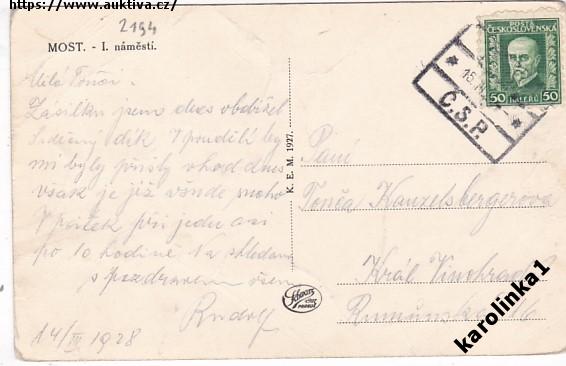 https://www.auktiva.cz/
2194
MOST. - I. náměstí.
POŠTA
ČESKOSLOVENSKÁ
50 HALÉŘŮ 50
15.
Č.S.P.
Milá Tončo.
Zásilku jsem dnes obdržel
Srdečný dík V pondělí by
mi byly přišly vhod dnes
však je již všude sucho
V pátek přijedu asi
po 10 hodině Na shledanou
s pozdravem všem
Rudolf
14/III 1928
K. E. M. 1927.
Paní
Tonča Kanzelsbergerova
Král Vinohrady
Rumunská 16
karolinka1